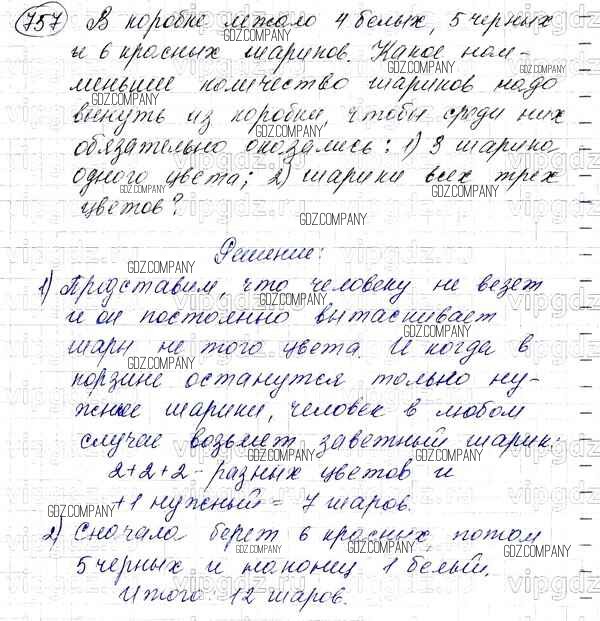 757 В коробке лежало 4 белых, 5 черных
и 6 красных шариков. Какое наи-
меньшее количество шариков надо
вынуть из коробки, чтобы среди них
обязательно оказались: 1) 3 шарика
одного цвета; 2) шарики всех трех
цветов?
Решение:
1) Представим, что человеку не везет
и он постоянно вытаскивает
шары не того цвета. И когда в
корзине останутся только ну-
жные шарики, человек в любом
случае возьмет заветный шарик:
2+2+2 - разных цветов и
+1 нужный = 7 шаров.
2) Сначала берет 6 красных, потом
5 черных и наконец 1 белый.
Итого: 12 шаров.